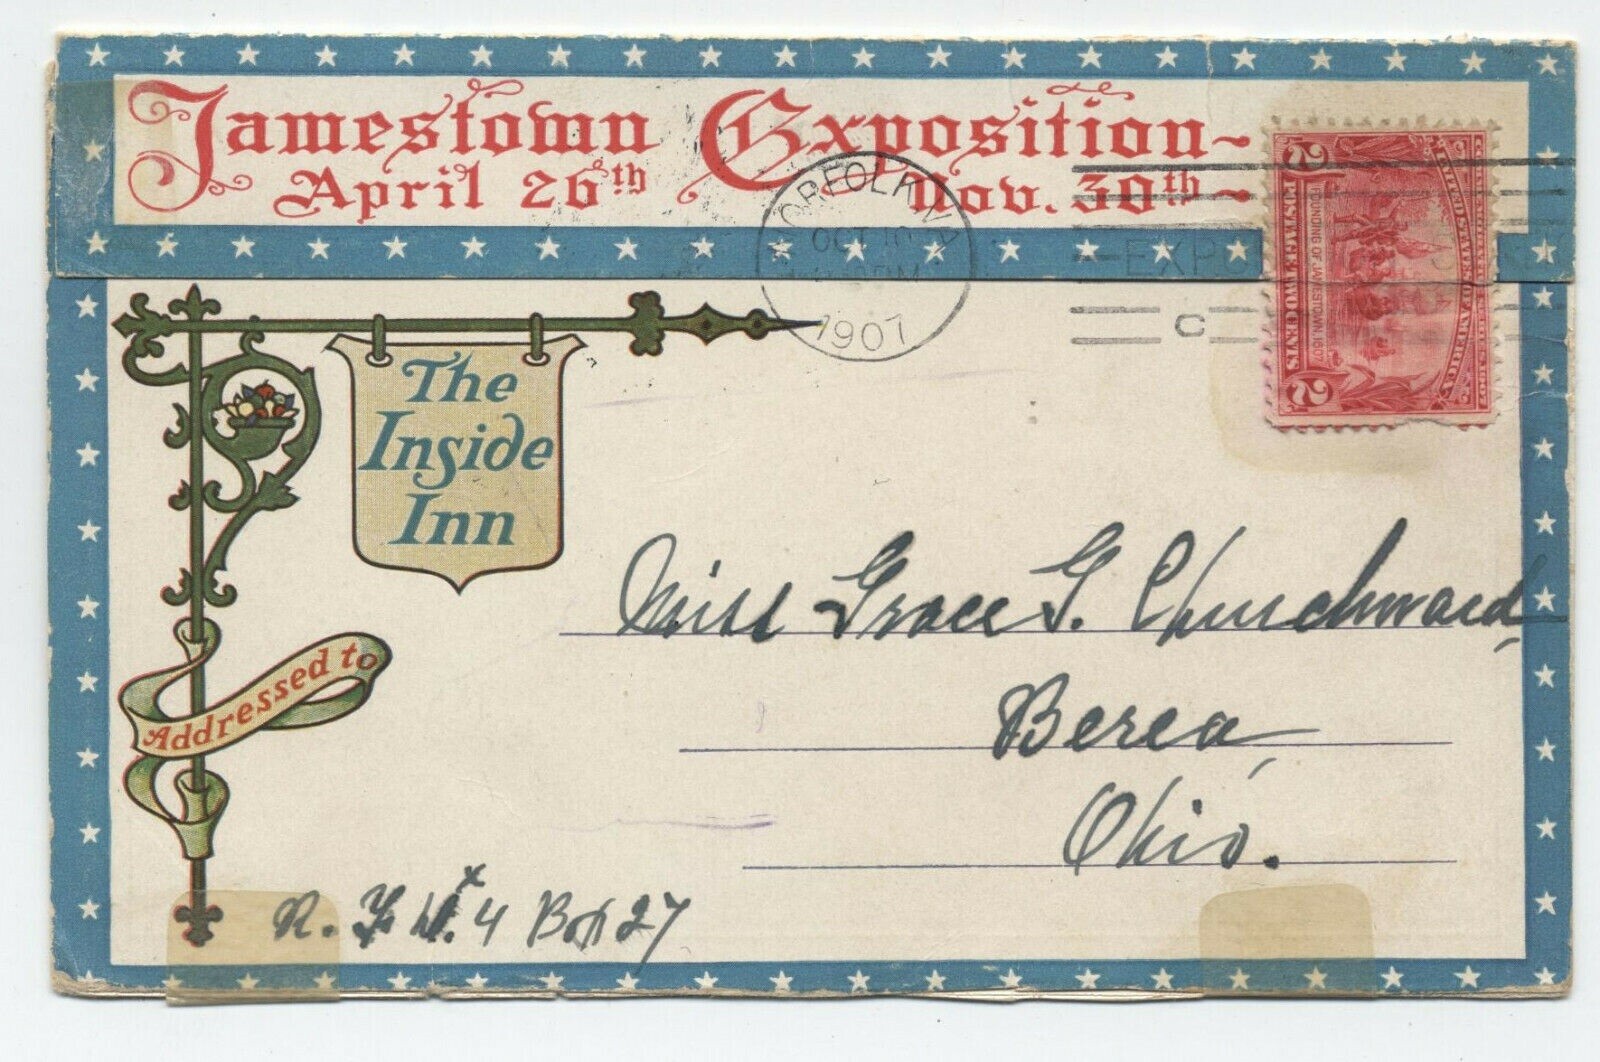 Jamestown Exposition~
April 26th Nov. 30th~
NORFOLK, VA
OCT 10
PM
1907
EXPO
C
POSTAGE TWO CENTS
FOUNDING OF JAMESTOWN, 1607
UNITED STATES OF AMERICA
2
2
The
Inside
Inn
Miss Grace G. Churchward,
Berea,
Ohio.
Addressed to
R. F. D. 4 Box 27